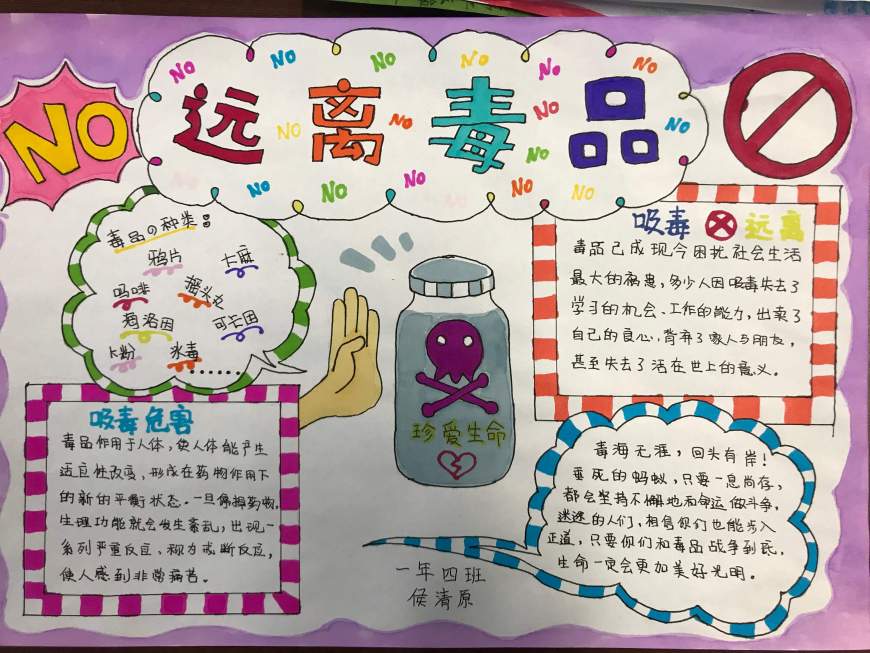 NO
远离毒品
NO NO NO NO NO NO
NO NO NO NO NO
NO NO NO NO NO
毒品の种类:
鸦片 大麻
吗啡 摇头丸
海洛因 可卡因
K粉 冰毒 ……
吸毒危害
毒品作用于人体,使人体能产生
适应性改变,形成在药物作用下
的新的平衡状态。一旦停掉药物,
生理功能就会发生紊乱,出现一
系列严重反应、称为戒断反应,
使人感到非常痛苦。
珍爱生命
吸毒 远离
毒品已成现今困扰社会生活
最大的病患,多少人因吸毒失去了
学习的机会、工作的能力,出卖了
自己的良心,背弃了家人与朋友,
甚至失去了活在世上的意义。
毒海无涯,回头有岸!
垂死的蚂蚁,只要一息尚存,
都会坚持不懈地和命运做斗争,
迷途的人们,相信你们也能步入
正道,只要你们和毒品战争到底,
生命一定会更加美好光明。
一年四班
侯清原